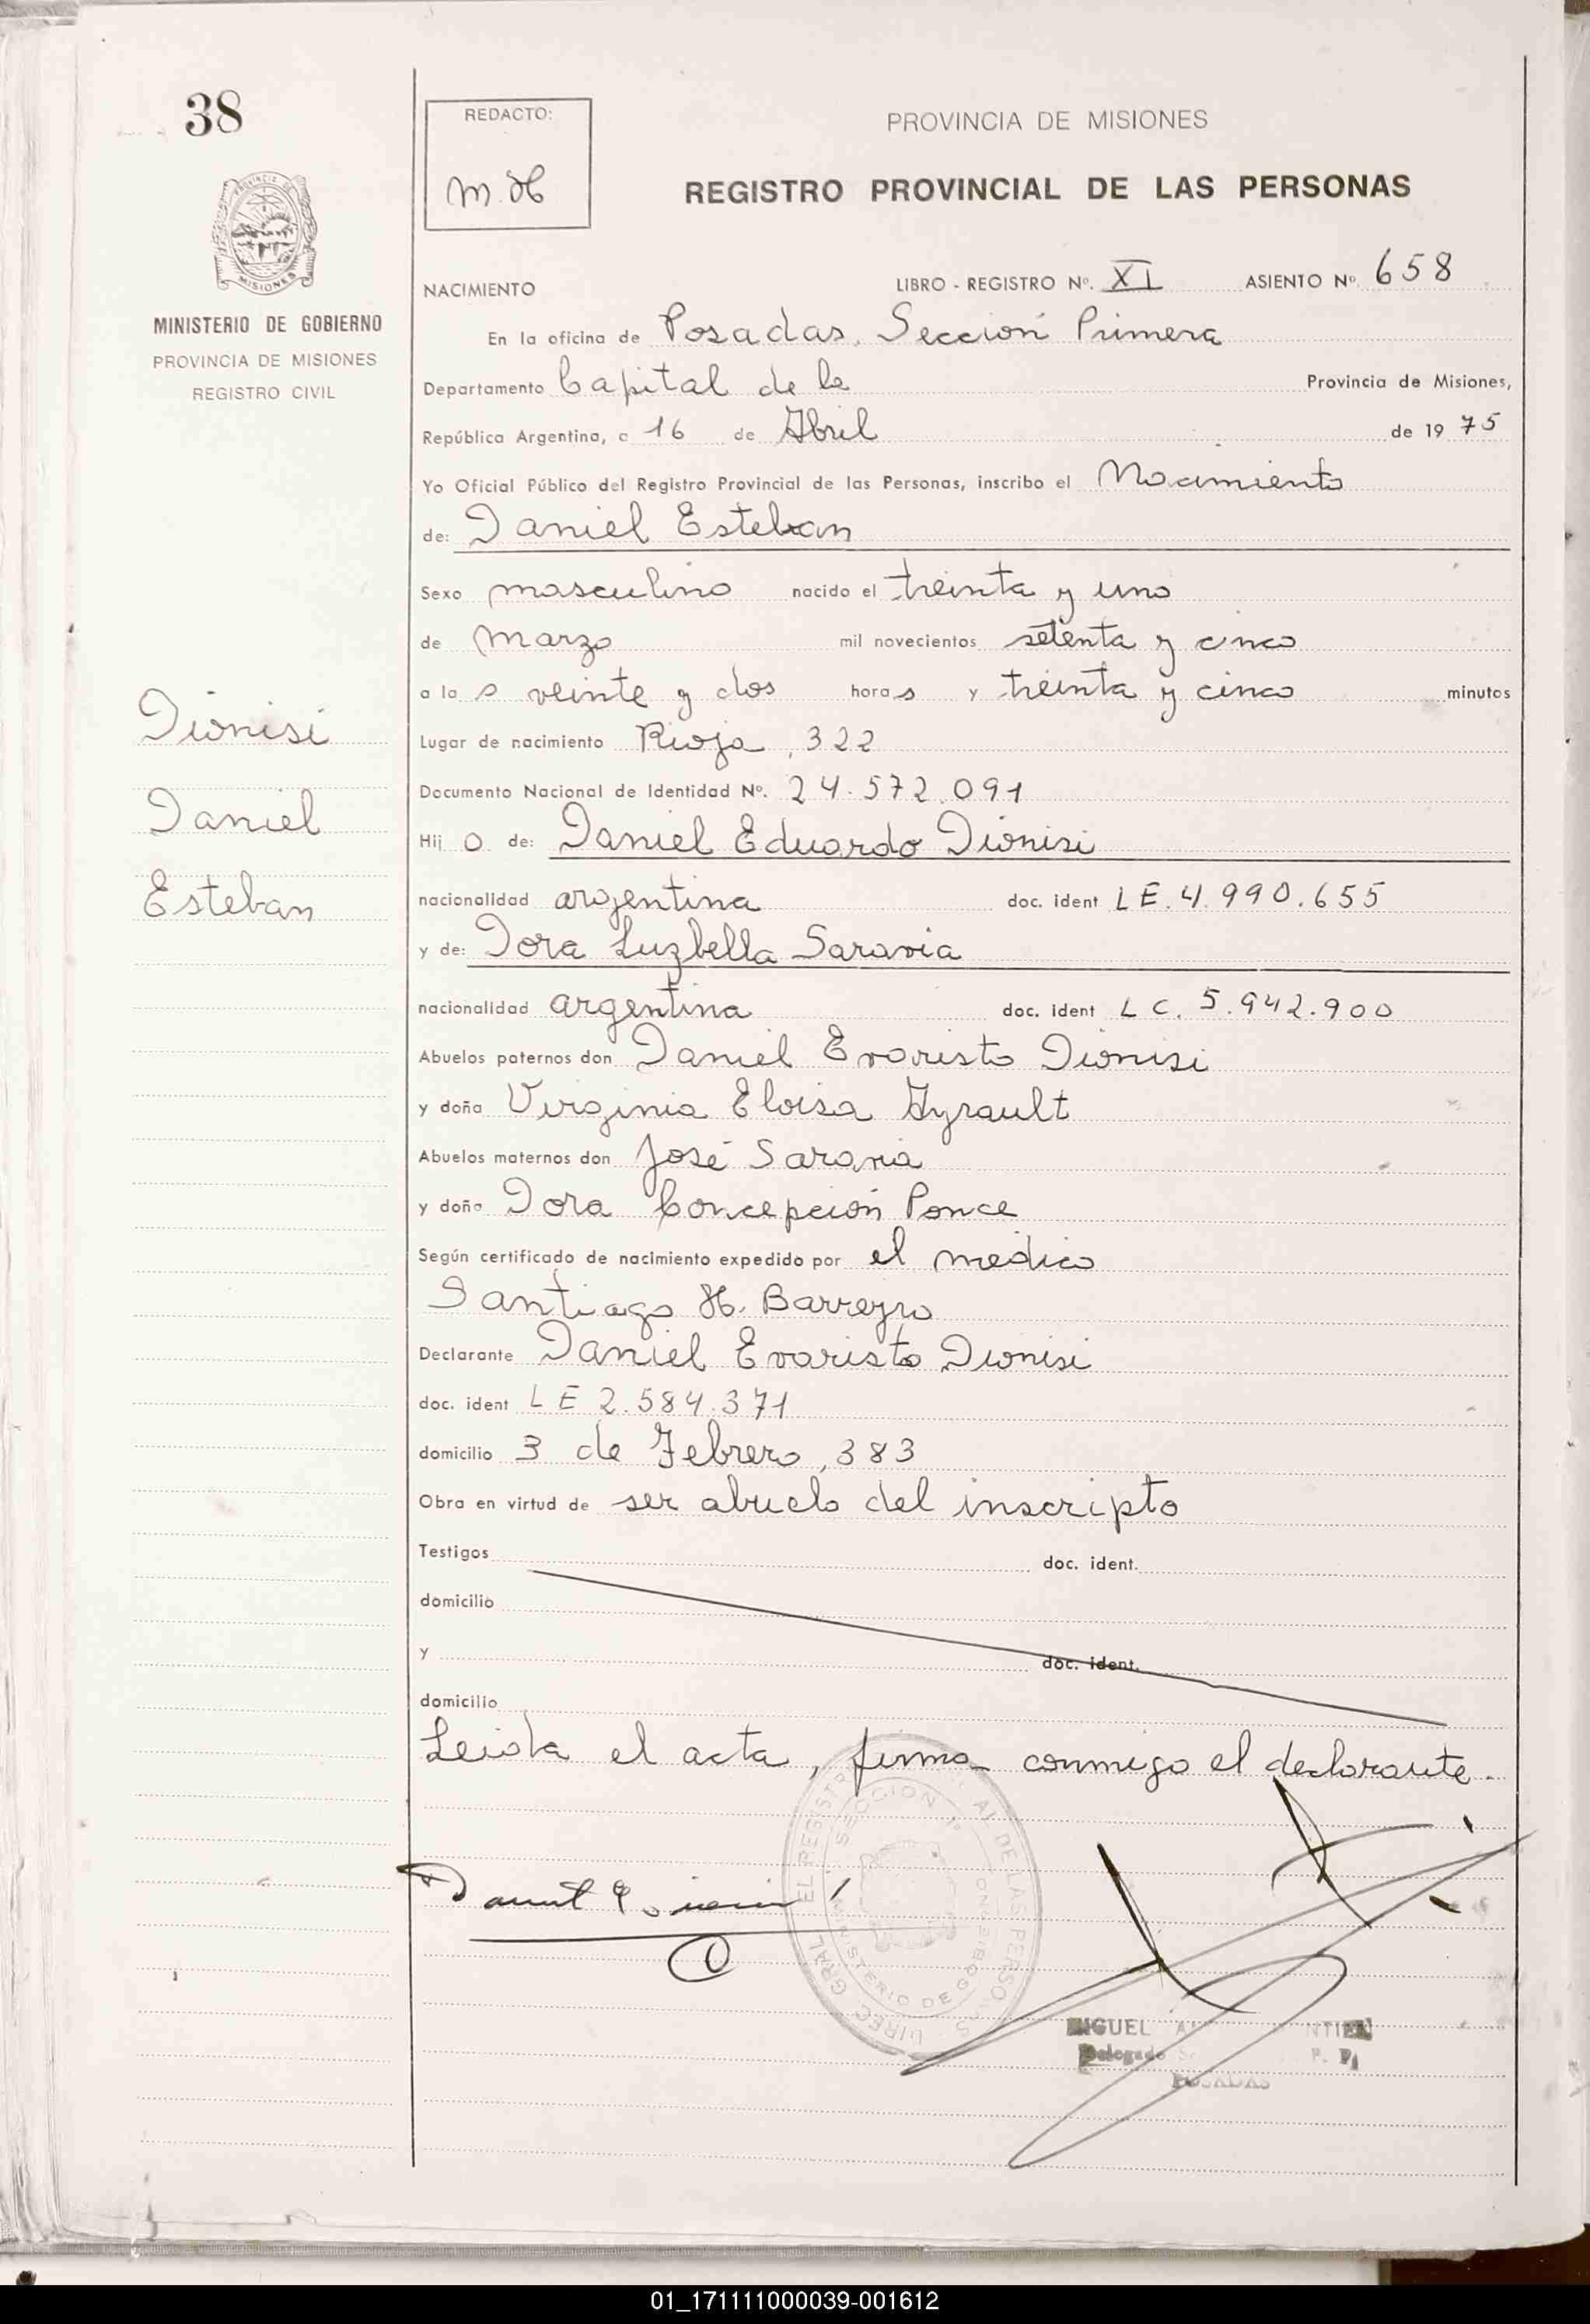 38
REDACTO:
M. H
PROVINCIA DE MISIONES
REGISTRO PROVINCIAL DE LAS PERSONAS
MISIONES
MINISTERIO DE GOBIERNO
PROVINCIA DE MISIONES
REGISTRO CIVIL
NACIMIENTO LIBRO - REGISTRO Nº. XI ASIENTO Nº. 658
En la oficina de Posadas, Sección Primera
Departamento Capital de la Provincia de Misiones,
República Argentina, a 16 de Abril de 19 75
Yo Oficial Público del Registro Provincial de las Personas, inscribo el Nacimiento
de: Daniel Esteban
Sexo masculino nacido el treinta y uno
de Marzo mil novecientos setenta y cinco
a la s veinte y dos hora s y treinta y cinco minutos
Lugar de nacimiento Rioja, 322
Documento Nacional de Identidad Nº. 24.572.091
Hij o de: Daniel Eduardo Dionisi
nacionalidad argentina doc. ident LE. 4.990.655
y de: Dora Luzbella Saravia
nacionalidad argentina doc. ident LC. 5.942.900
Abuelos paternos don Daniel Evaristo Dionisi
y doña Virginia Eloisa Ayrault
Abuelos maternos don José Saravia
y doña Dora Concepción Ponce
Según certificado de nacimiento expedido por el médico
Santiago H. Barreyro
Declarante Daniel Evaristo Dionisi
doc. ident LE 2.584.371
domicilio 3 de Febrero, 383
Obra en virtud de ser abuelo del inscripto
Testigos doc. ident.
domicilio
y doc. ident.
domicilio
Leida el acta, firma conmigo el declarante.
Dionisi
Daniel
Esteban
SECCION 1º
MINISTERIO DE GOBIERNO
POSADAS
01_171111000039-001612